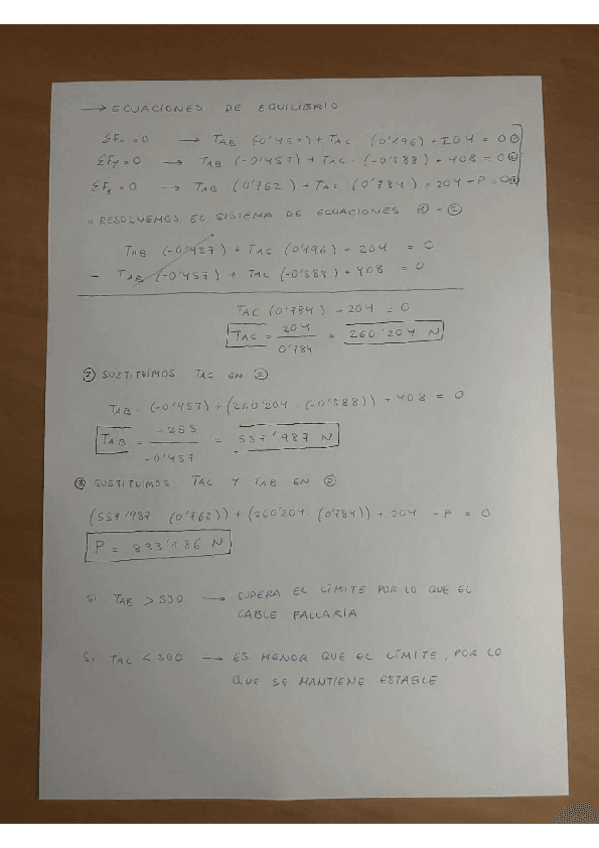 → ECUACIONES DE EQUILIBRIO
ΣFx = 0 → TAB (-0'457) + TAC (0'196) + 204 = 0 ①
ΣFy = 0 → TAB (-0'457) + TAC · (-0'588) + 408 = 0 ②
ΣFz = 0 → TAB (0'762) + TAC (0'784) + 204 - P = 0 ③
• RESOLVEMOS EL SISTEMA DE ECUACIONES ① - ②
TAB (-0'457) + TAC (0'196) + 204 = 0
- TAB (-0'457) + TAC (-0'588) + 408 = 0
TAC (0'784) - 204 = 0
TAC = 204 / 0'784 = 260'204 N
② SUSTITUÍMOS TAC EN ②
TAB · (-0'457) + (260'204 · (-0'588)) + 408 = 0
TAB = -255 / -0'457 = 557'987 N
③ SUSTITUIMOS TAC Y TAB EN
(557'987 (0'762)) + (260'204 · (0'784)) + 204 - P = 0
P = 833'186 N
Si TAB > 550 → SUPERA EL LÍMITE POR LO QUE EL
CABLE FALLARÍA
Si TAC < → ES MENOR QUE EL LÍMITE, POR LO
QUE SE MANTIENE ESTABLE